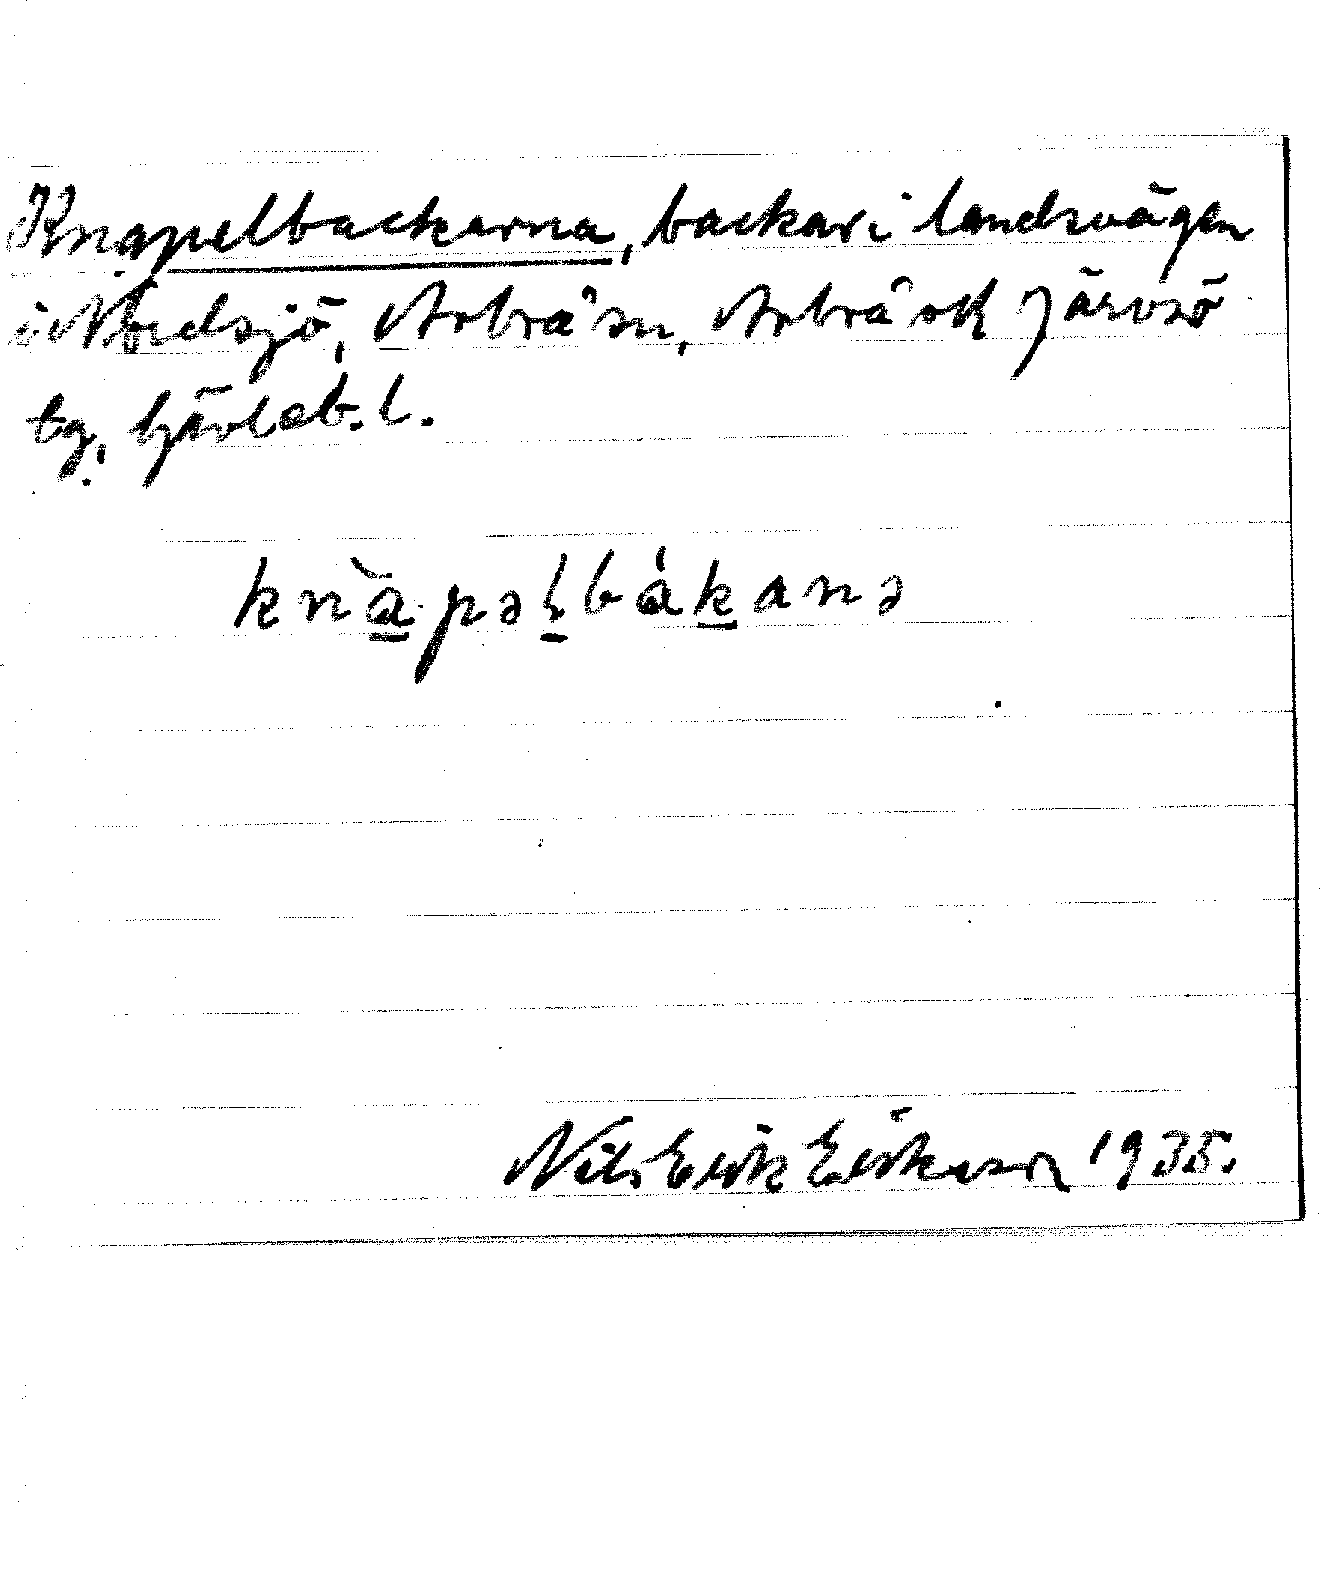 Knapelbackarna, backar i landsvägen
i Nordsjö, Arbrå sn, Arbrå ock Järvsö
tg, Gävleb. l.
knàpəlbákanə
Nils Erik Eriksson 1935.